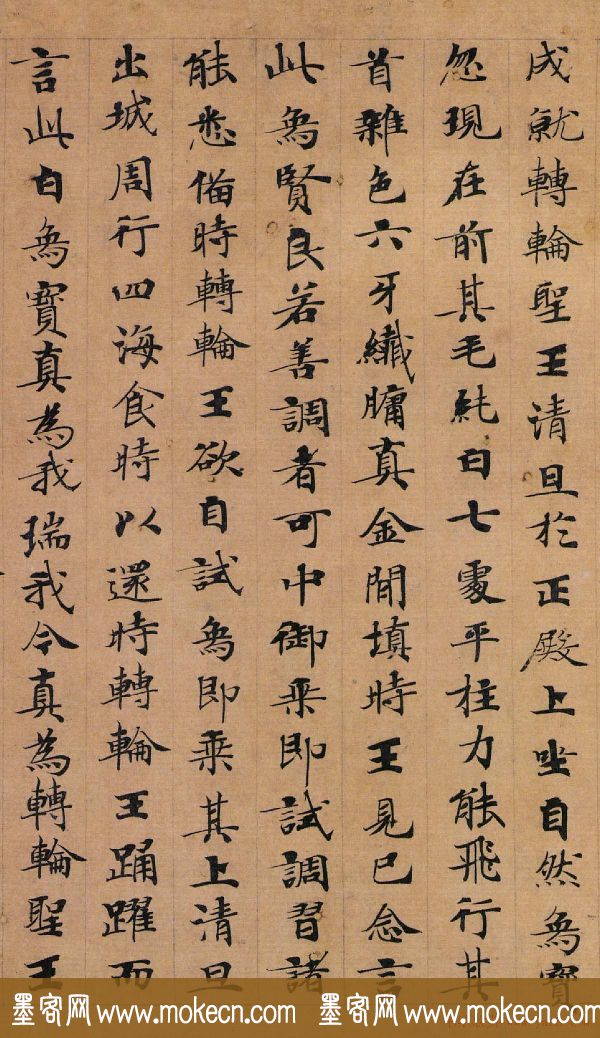 成就轉輪聖王清旦於正殿上坐自然象寶
忽現在前其毛純白七處平柱力能飛行其
首雜色六牙纖𦟛真金間填時王見已念言
此象賢良若善調者可中御乘即試調習諸
能悉俻時轉輪王欲自試象即乘其上清旦
出城周行四海食時以還時轉輪王踊躍而
言此白象寶真為我瑞我今真為轉輪聖王
墨客网 www.mokecn.com 墨客网 www.mokecn.com